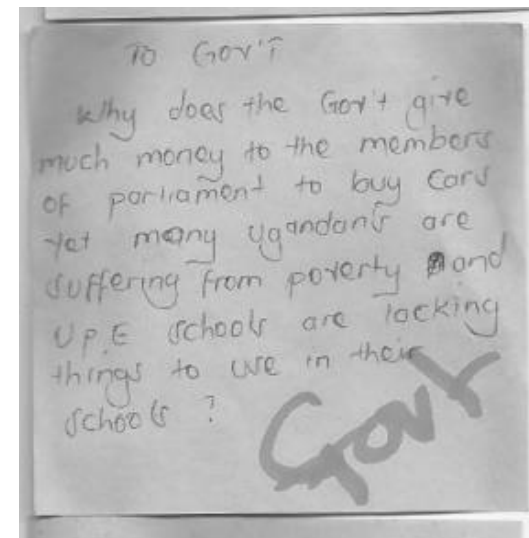 TO GOV'T
Why does the Gov't give
much money to the members
of parliament to buy cars
yet many Ugandans are
suffering from poverty and
U.P.E schools are lacking
things to use in their
schools ?
Govt